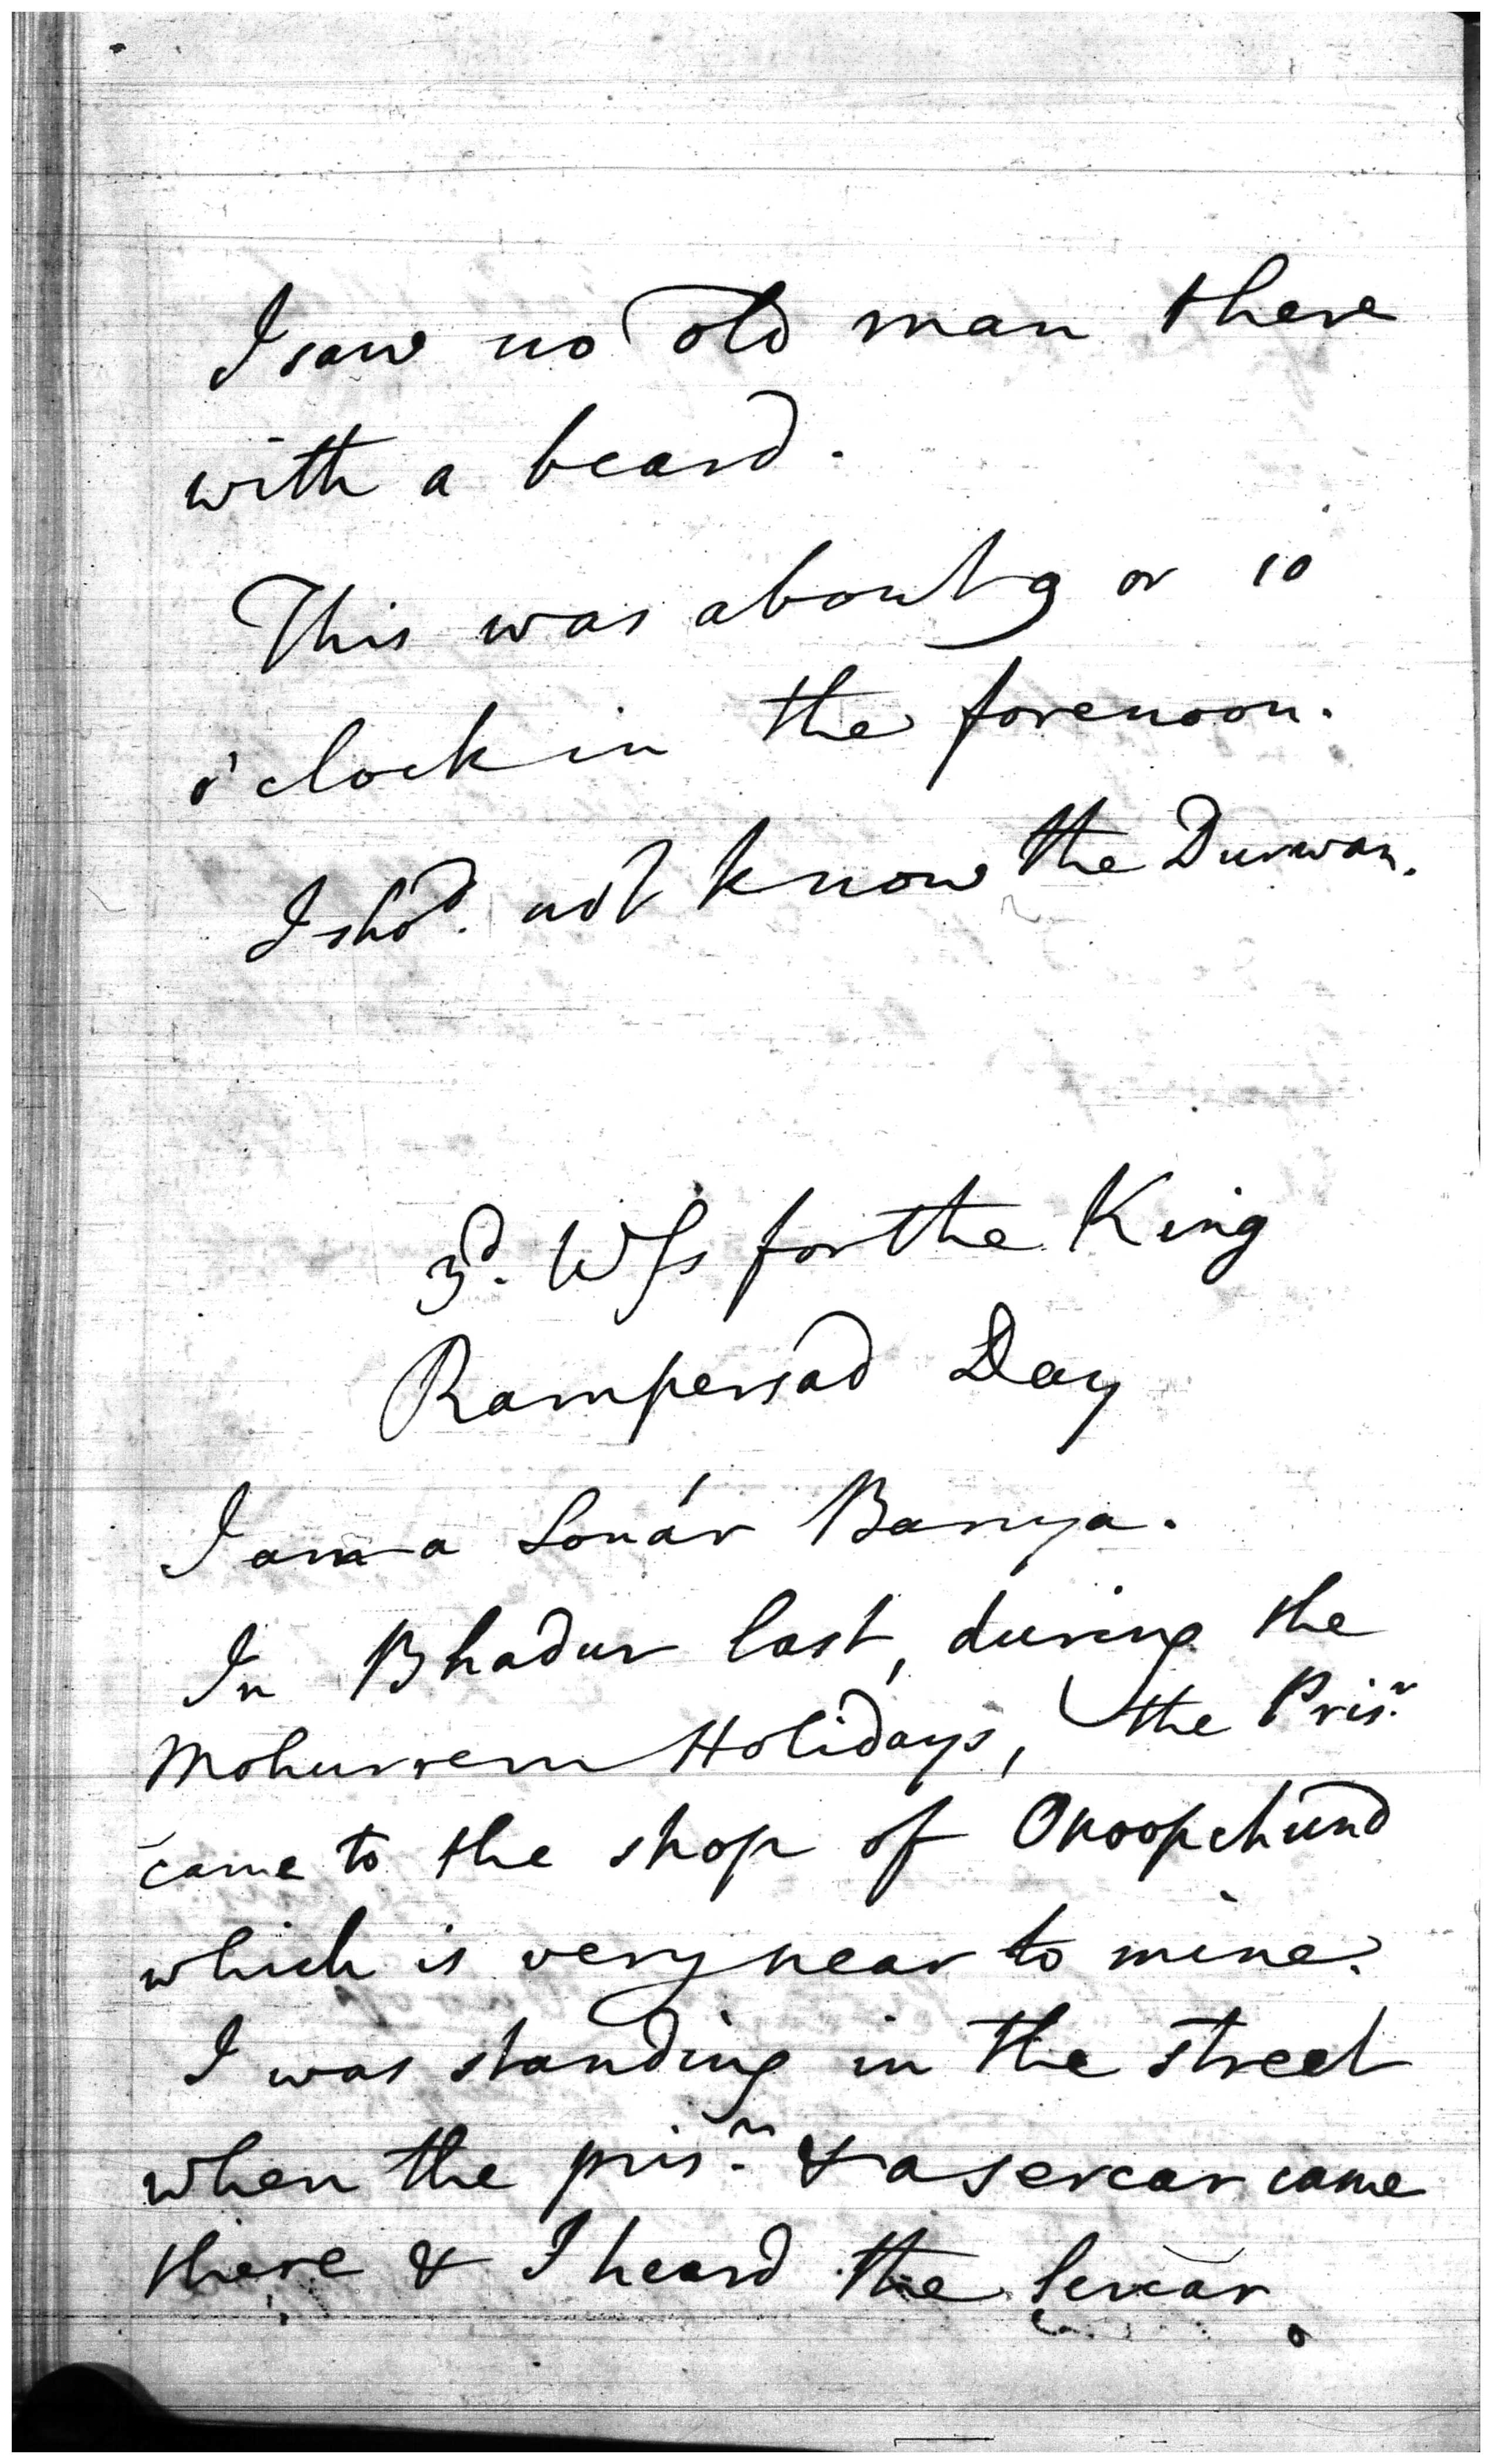 I saw no old man there
with a beard.
This was about 9 or 10
o'clock in the forenoon.
I sho'd. not know the Durwan.
3d. Wss for the King
Rampersad Day
I am a Sonár Banya.
In Bhadur last, during the
Mohurrem Holidays, the Prisr.
came to the shop of Onoopchund
which is very near to mine.
I was standing in the street
when the prisr. & a sercar came
there & I heard the sercar